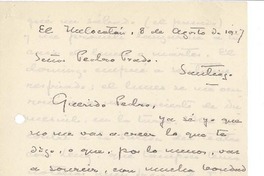 El Melocotón, 8 de Agosto de 1917
Señor Pedro Prado.
Santiago.
Querido Pedro,
Ya sé yo que
no me vas a creer lo que te
digo, o que, por lo menos, vas
a sonreir, con mucha bondad